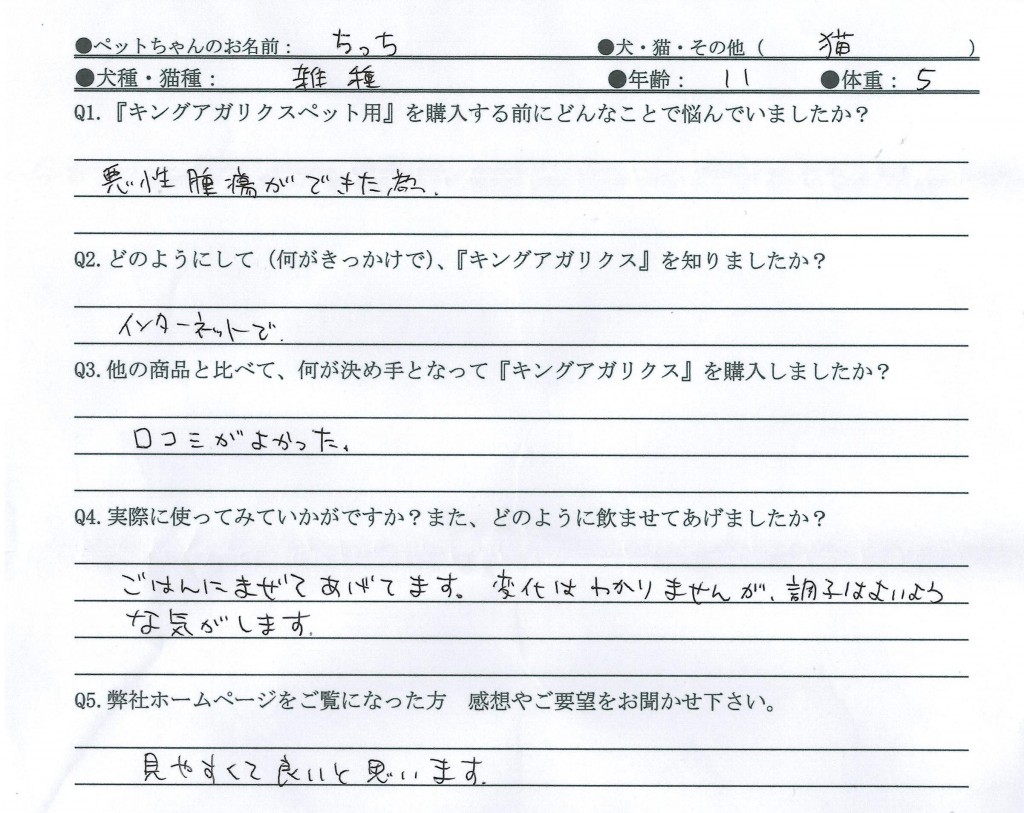 ●ペットちゃんのお名前： ちっち ●犬・猫・その他（ 猫 ）
●犬種・猫種： 雑種 ●年齢： 11 ●体重： 5
Q1.『キングアガリクスペット用』を購入する前にどんなことで悩んでいましたか？
悪性腫瘍ができた為、
Q2.どのようにして（何がきっかけで）、『キングアガリクス』を知りましたか？
インターネットで、
Q3.他の商品と比べて、何が決め手となって『キングアガリクス』を購入しましたか？
口コミがよかった。
Q4.実際に使ってみていかがですか？また、どのように飲ませてあげましたか？
ごはんにまぜてあげてます。変化はわかりませんが、調子はよいよう
な気がします。
Q5.弊社ホームページをご覧になった方　感想やご要望をお聞かせ下さい。
見やすくて良いと思います。